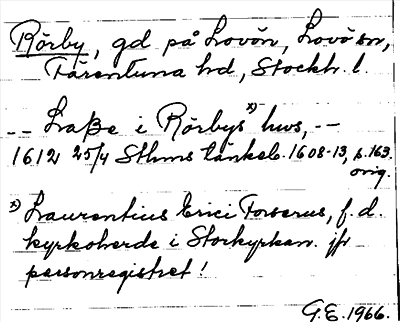 Rörby, gd på Lovön, Lovö sn,
Färentuna hd, Stockh. l.
-- Laße i Rörbys x) hws, --
1612 25/4 Sthms tänkeb. 1608-13, s. 163.
orig.
x) Laurentius Erici Forserus, f.d.
kyrkoherde i Storkyrkan. jfr
personregistret!
G.E. 1966.